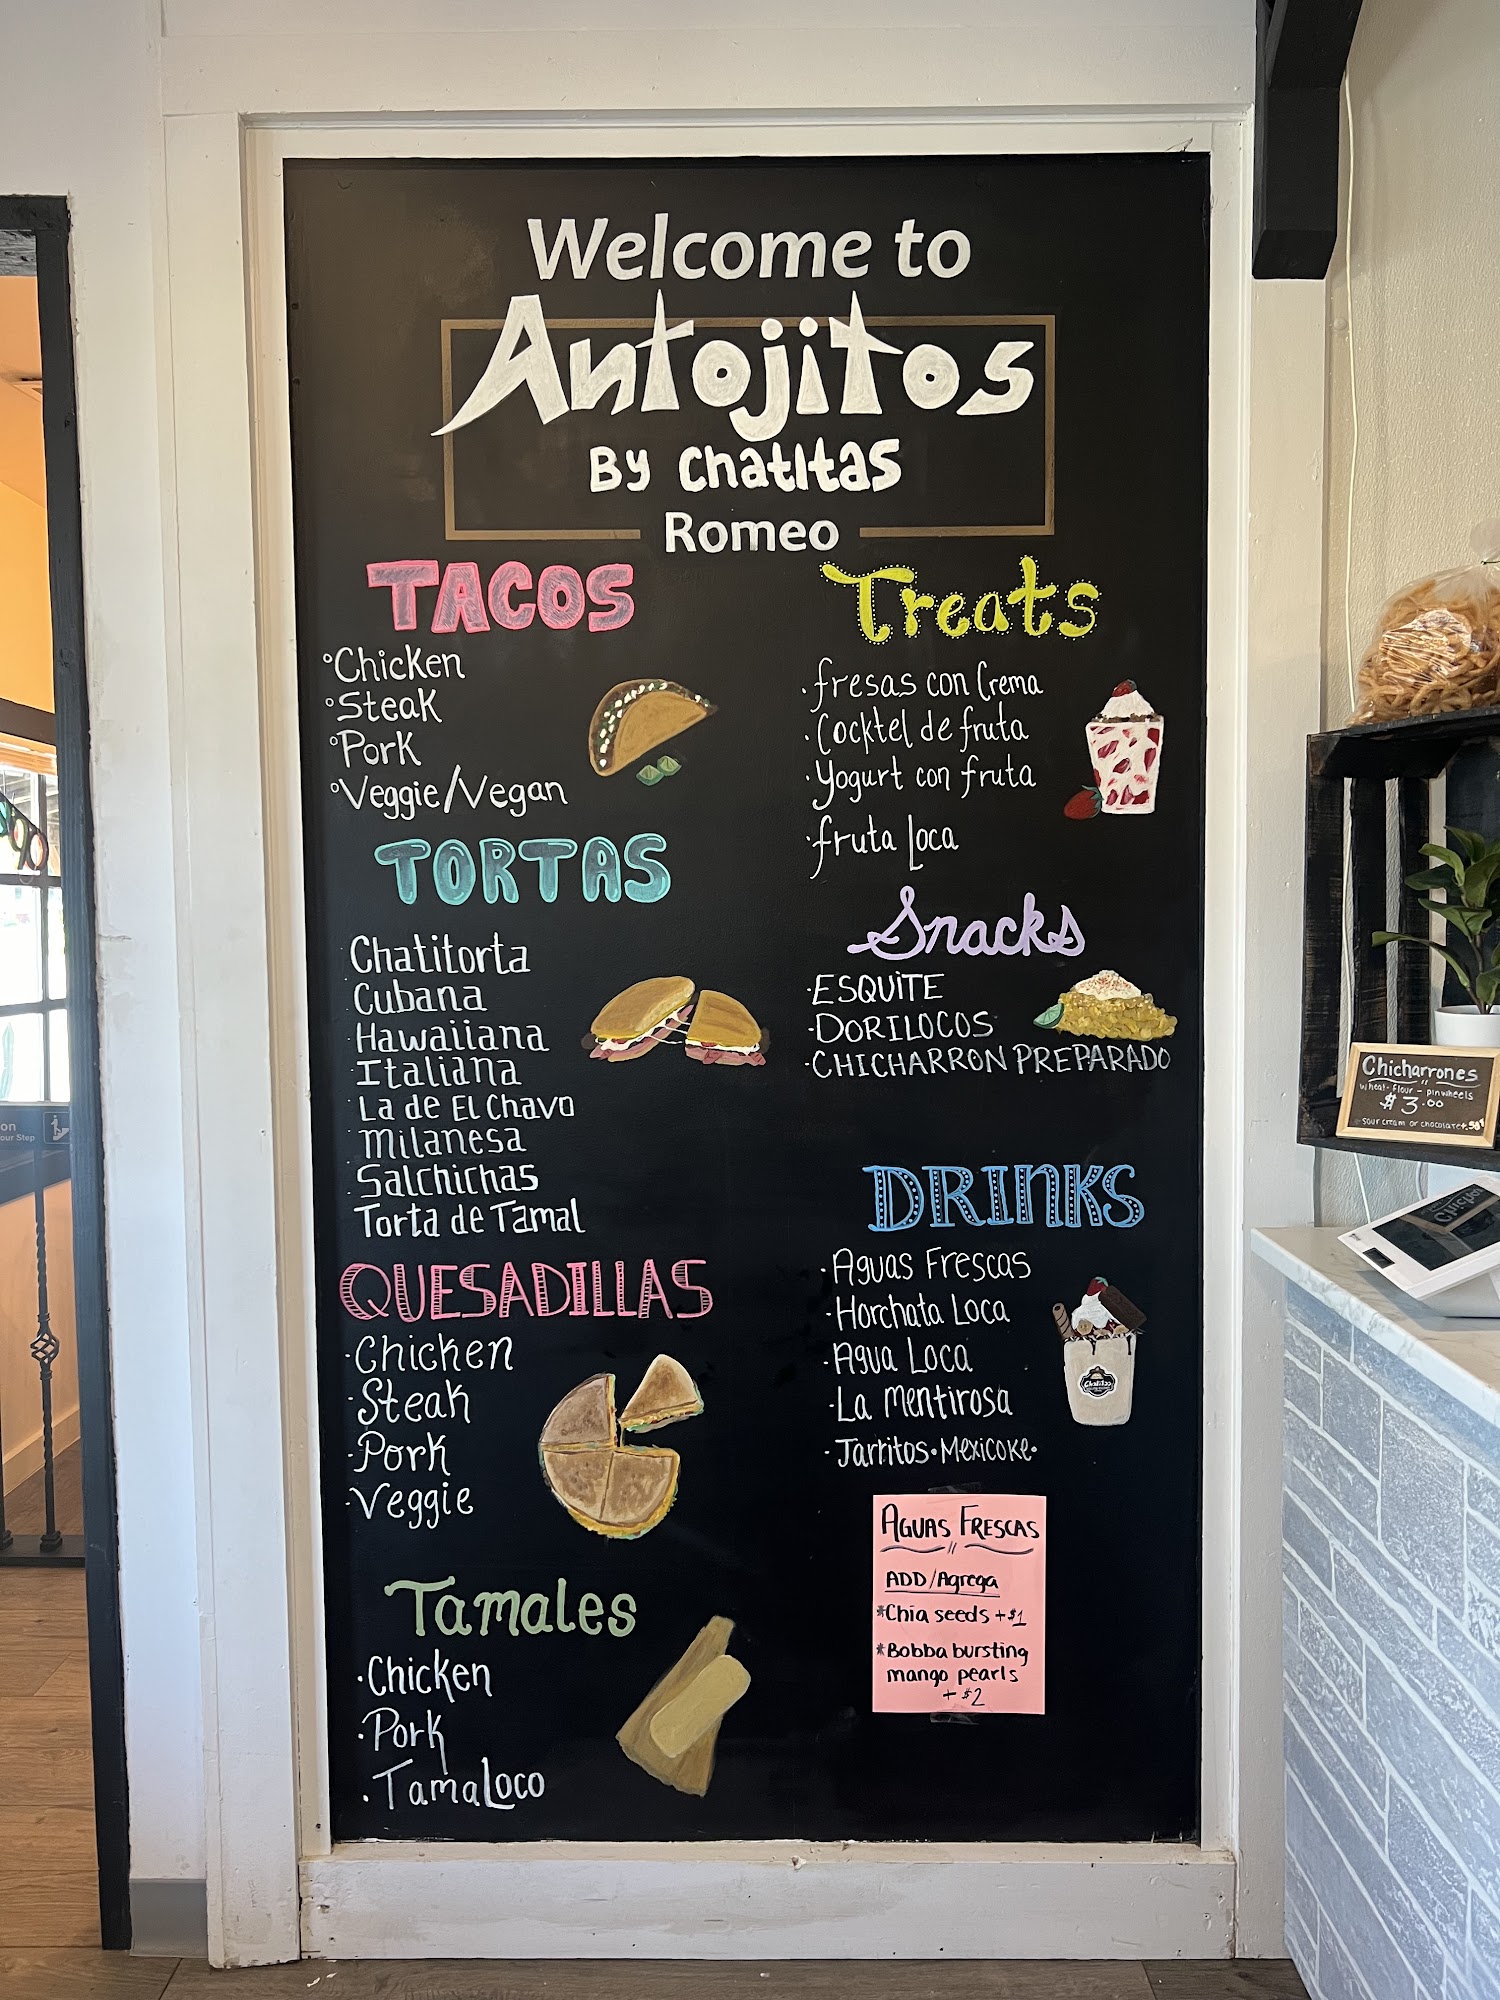 Welcome to
Antojitos
By Chatitas
Romeo
TACOS
Chicken
Steak
Pork
Veggie/Vegan
TORTAS
Chatitorta
Cubana
Hawaiiana
Italiana
La de El Chavo
Milanesa
Salchichas
Torta de Tamal
QUESADILLAS
Chicken
Steak
Pork
Veggie
Tamales
Chicken
Pork
TamaLoco
Treats
fresas con Crema
Cocktel de fruta
Yogurt con fruta
fruta Loca
Snacks
ESQUITE
DORILOCOS
CHICHARRON PREPARADO
DRINKS
Aguas Frescas
Horchata Loca
Agua Loca
La Mentirosa
Jarritos • Mexicoke •
AGUAS FRESCAS
ADD/Agrega
*Chia seeds +$1
*Bobba bursting
mango pearls
+ $2
Chicharrones
wheat-flour-pinwheels
$3.00
sour cream or chocolate +.50¢